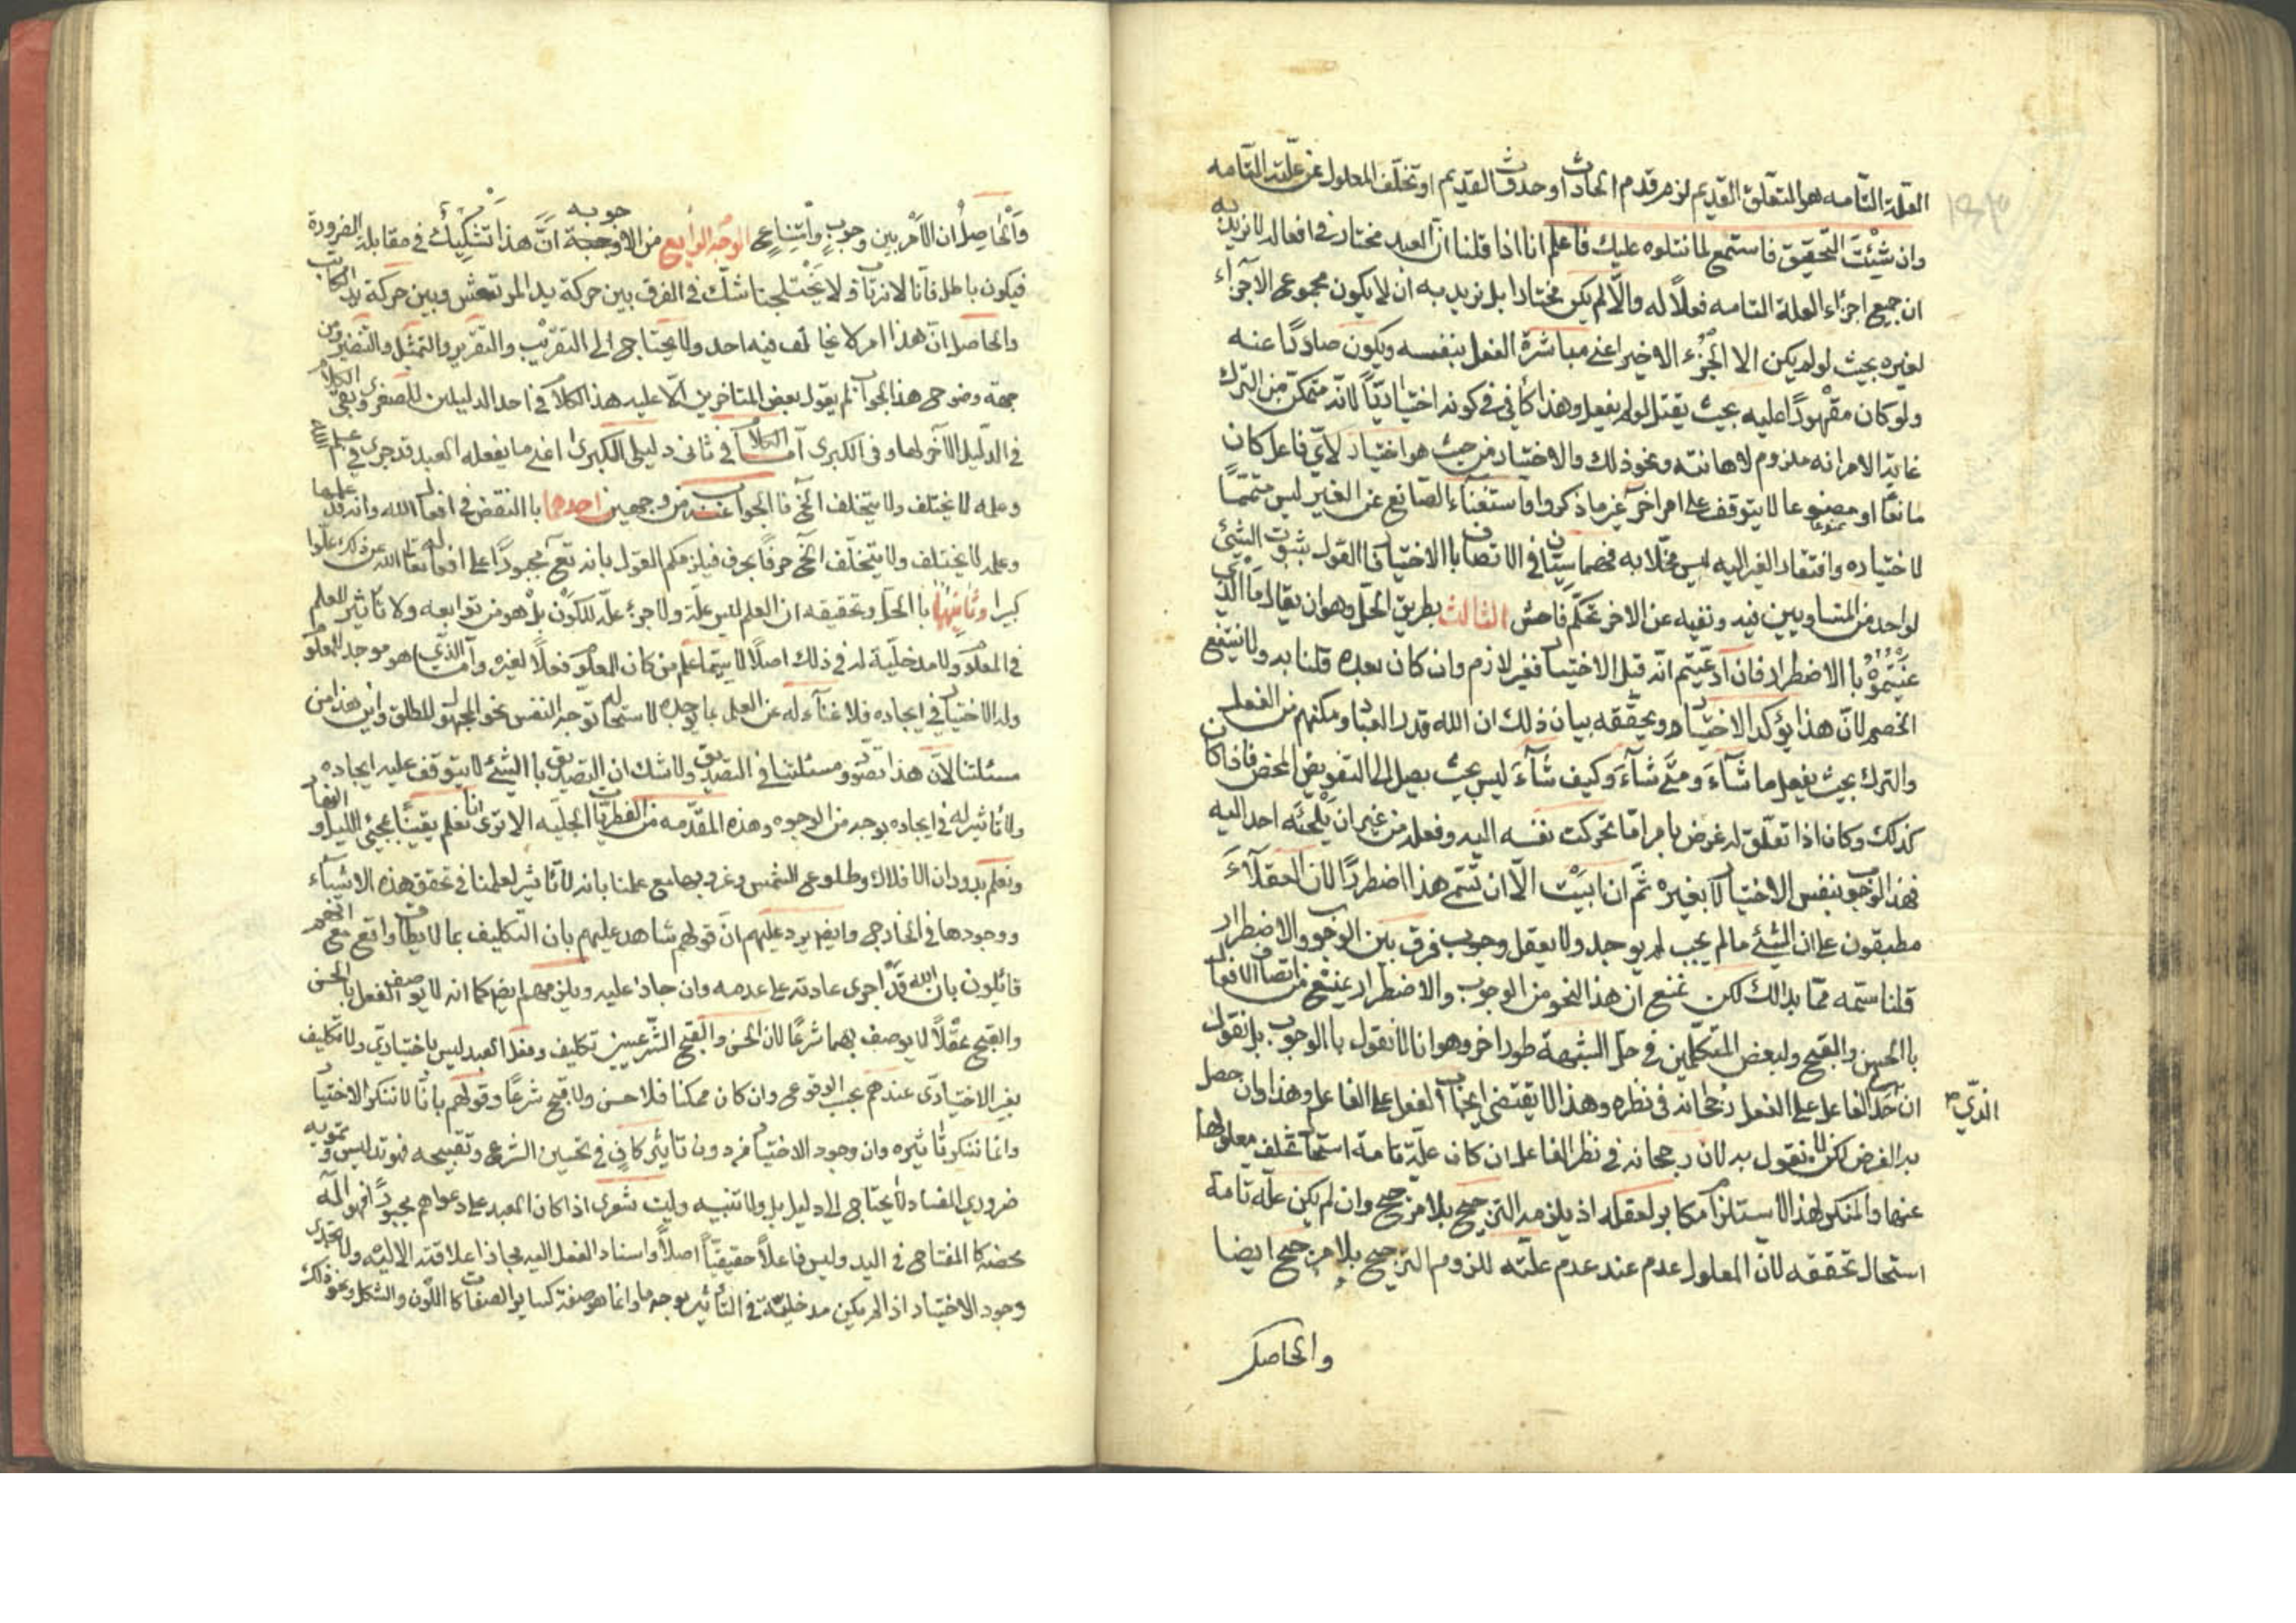 العلة التامه هو التعلق القديم لزم قدم الحادث او حدوث القديم او تخلف المعلول عن علته التامه
وان شئت التحقيق فاستمع لما نتلوه عليك فاعلم انا اذا قلنا ان العبد مختار في افعاله لا نريد به
ان جميع اجزاء العلة التامه فعلا له والا لم يكن مختارا بل نريد به ان لا يكون مجموع الاجزاء
لغيره بحيث لو لم يكن الا الجزء الاخير اعني مباشرة الفعل بنفسه ويكون صادرا عنه
ولو كان مقهورا عليه بحيث يقتل لو لم يفعل وهذا كافي في كونه اختياريا لانه متمكن من الترك
غاية الامر انه ملزوم لاهانته ونحو ذلك والاختيار من حيث هو اختيار لاي فاعل كان
مانعا او مصنوعا لا يتوقف على امر اخر غير ما ذكروا واستغناء الصانع عن الغير ليس متمما
لاختياره وافتقار الغير اليه ليس مخلا به فهما سيان في الاتصاف باالاختيار فاالقول بثبوت الشيئ
لواحد من المتساويين فيه ونفيه عن الاخر تحكم فاحش الثالث بطريق الحل وهو ان يقال ما الذي
عنيتموه باالاضطرار فان ادعيتم انه قبل الاختيار فغير لازم وان كان بعده قلنا به ولا ينتفع
الخصم لان هذا يؤكد الاختيار ويحققه بيان ذلك ان الله قدر العباد ومكنهم من الفعل
والترك بحيث يفعل ما شآء ومتى شآء وكيف شآء ليس بحيث يصل الى التفويض المحض فاذا كان
كذلك وكان اذا تعلق له غرض بامر ما تحركت نفسه اليه وفعله من غير ان يلجئه احد اليه
فهذا الوجوب بنفس الاختيار لا بغيره ثم ان ابيت الا ان تسم هذا اضطرارا لان العقلآء
مطبقون على ان الشئ مالم يجب لم يوجد ولا يعقل وجوب فرق بين الوجوب والاضطرار
قلنا سمه مما بدالك لكن نمنع ان هذا النحو من الوجوب والاضطرار يمنع من اتصاف الافعال
باالحسن والقبح ولبعض المتكلمين في حل الشبهة طور اخر وهو انا لا نقول باالوجوب بل نقول
الذي
ان الفاعل على الفعل رجحانه في نظره وهذا لا يقتضي ايجاب الفعل على الفاعل وهذا وان حصل
به الغرض لكن لا نقول به لان رجحانه في نظر الفاعل ان كان علة تامة استحال تخلف معلولها
عنها والمنكر لهذا الاستلزام مكابر لعقله اذ يلزمه الترجيح بلا مرجح وان لم يكن علة تامة
استحال تحققه لان المعلول عدم عند عدم علته للزوم الترجيح بلا مرجح ايضا
والحاصل
والحاصل ان الامر بين وجوب وامتناع الوجه الرابع من الاوجبة جوبه ان هذا تشكيك في مقابلة الضرورة
فيكون باطلا فانا لا نرتاب ولا يختلجنا شك في الفرق بين حركة يد المرتعش وبين حركة يد الكاتب
والحاصل ان هذا امر لا يخالف فيه احد ولا يحتاج الى التقريب والتقرير والتمثل والتنضير ومن
جهة وضوح هذا الجواب لم يقول بعض المتاخرين الا عليه هذا الكلام في احد الدليلين للصغرى وبقى الكلام
في الدليل الاخر لها وفي الكبرى اما الكلام في ثاني دليلى الكبرى اعني ما يفعله العبد قد جرى في علم الله
وعلمه لا يختلف ولا يتخلف الخ فاالجواب عنه من وجهين احدهما باالنقض في افعال الله وانه قد علمها
وعلمه لا يختلف ولا يتخلف الخ حرفا بحرف فيلزمكم القول بانه تع مجبورا على افعاله تعا الله عن ذلك علوا
كبيرا وثانيها باالحل وتحقيقه ان العلم ليس علة ولا جزء علة للكون بل هو من توابعه ولا تاثير للعلم
في المعلوم ولا مدخلية له في ذلك اصلا لا سيما علم من كان المعلوم فعلا لغيره واما الذي هو موجد للمعلوم
وله الاختيار في ايجاده فلا غناء له عن العلم بما يوجده لاستحاله توجه النفس نحو المجهول المطلق واين هذا من
مسئلتنا لان هذا تصور ومسئلتنا في التصديق ولا شك ان التصديق باالشئ لا يتوقف عليه ايجاده
ولا تاثير له في ايجاده بوجه من الوجوه وهذه المقدمه من الفطريات الجليه الا ترى انا نعلم يقينا بمجئ الليل والنهار
ونعلم بدوران الافلاك وطلوع الشمس وغروبها مع علمنا بانه لا تاثير لعلمنا في تحقق هذه الاشيآء
ووجودها في الخارج وايضا يرد عليهم ان قولهم شاهد عليهم بان التكليف بما لا يطاق واقع مع انهم
قائلون بان الله قد اجرى عادته على عدمه وان جاز عليه ويلزمهم ايضا كما انه لا يوصف الفعل باالحسن
والقبح عقلا لا يوصف بهما شرعا لان الحسن والقبح الشرعيين تكليف وفعل العبد ليس باختياري ولا تكليف
بغير الاختيارى عندهم يجب الوقوع وان كان ممكنا فلا حسن ولا قبح شرعا وقولهم بانا لا ننكر الاختيار
وانما ننكر تاثيره وان وجود الاختيار من دون تاثير كافي في تحسين الشرع وتقبيحه فهو تدليس وتمويه
ضروري الفساد لا يحتاج الى دليل بل ولا تنبيه وليت شعرى اذا كان العبد على دعواهم مجبورا فهو آلة
محضه كاالمفتاح في اليد وليس فاعلا حقيقيا اصلا واسناد الفعل اليه مجاز علاقته الاليه ولا يجدى
وجود الاختيار اذ الم يكن مدخلية في التاثير بوجه ما وانما هو صفة كساير الصفات كااللون والشكل ونحو ذلك